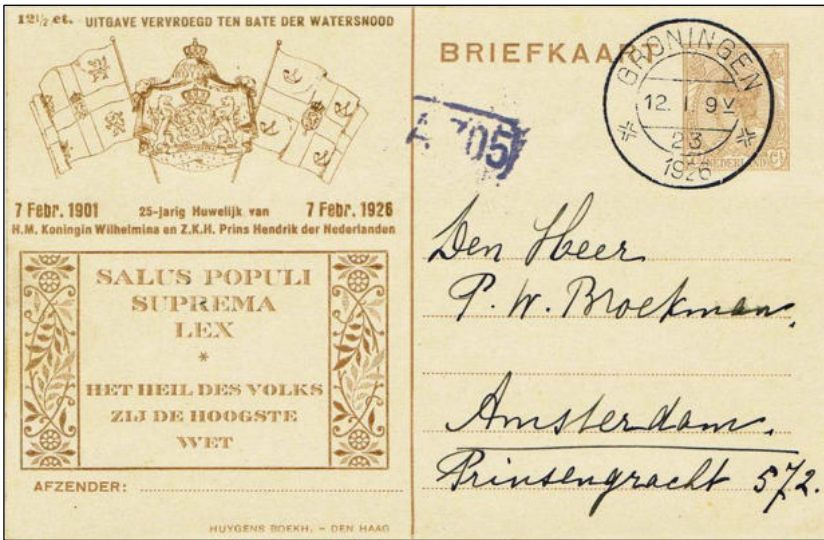 12½ ct. UITGAVE VERVROEGD TEN BATE DER WATERSNOOD
7 Febr. 1901 25-jarig Huwelijk van 7 Febr. 1926
H.M. Koningin Wilhelmina en Z.K.H. Prins Hendrik der Nederlanden
SALUS POPULI
SUPREMA
LEX
*
HET HEIL DES VOLKS
ZIJ DE HOOGSTE
WET
AFZENDER:
HUYGENS BOEKH. – DEN HAAG
BRIEFKAART
GRONINGEN
12. I. 9V
23
1926
NEDERLAND
705
Den Heer
P. W. Broekman.
Amsterdam.
Prinsengracht 572.